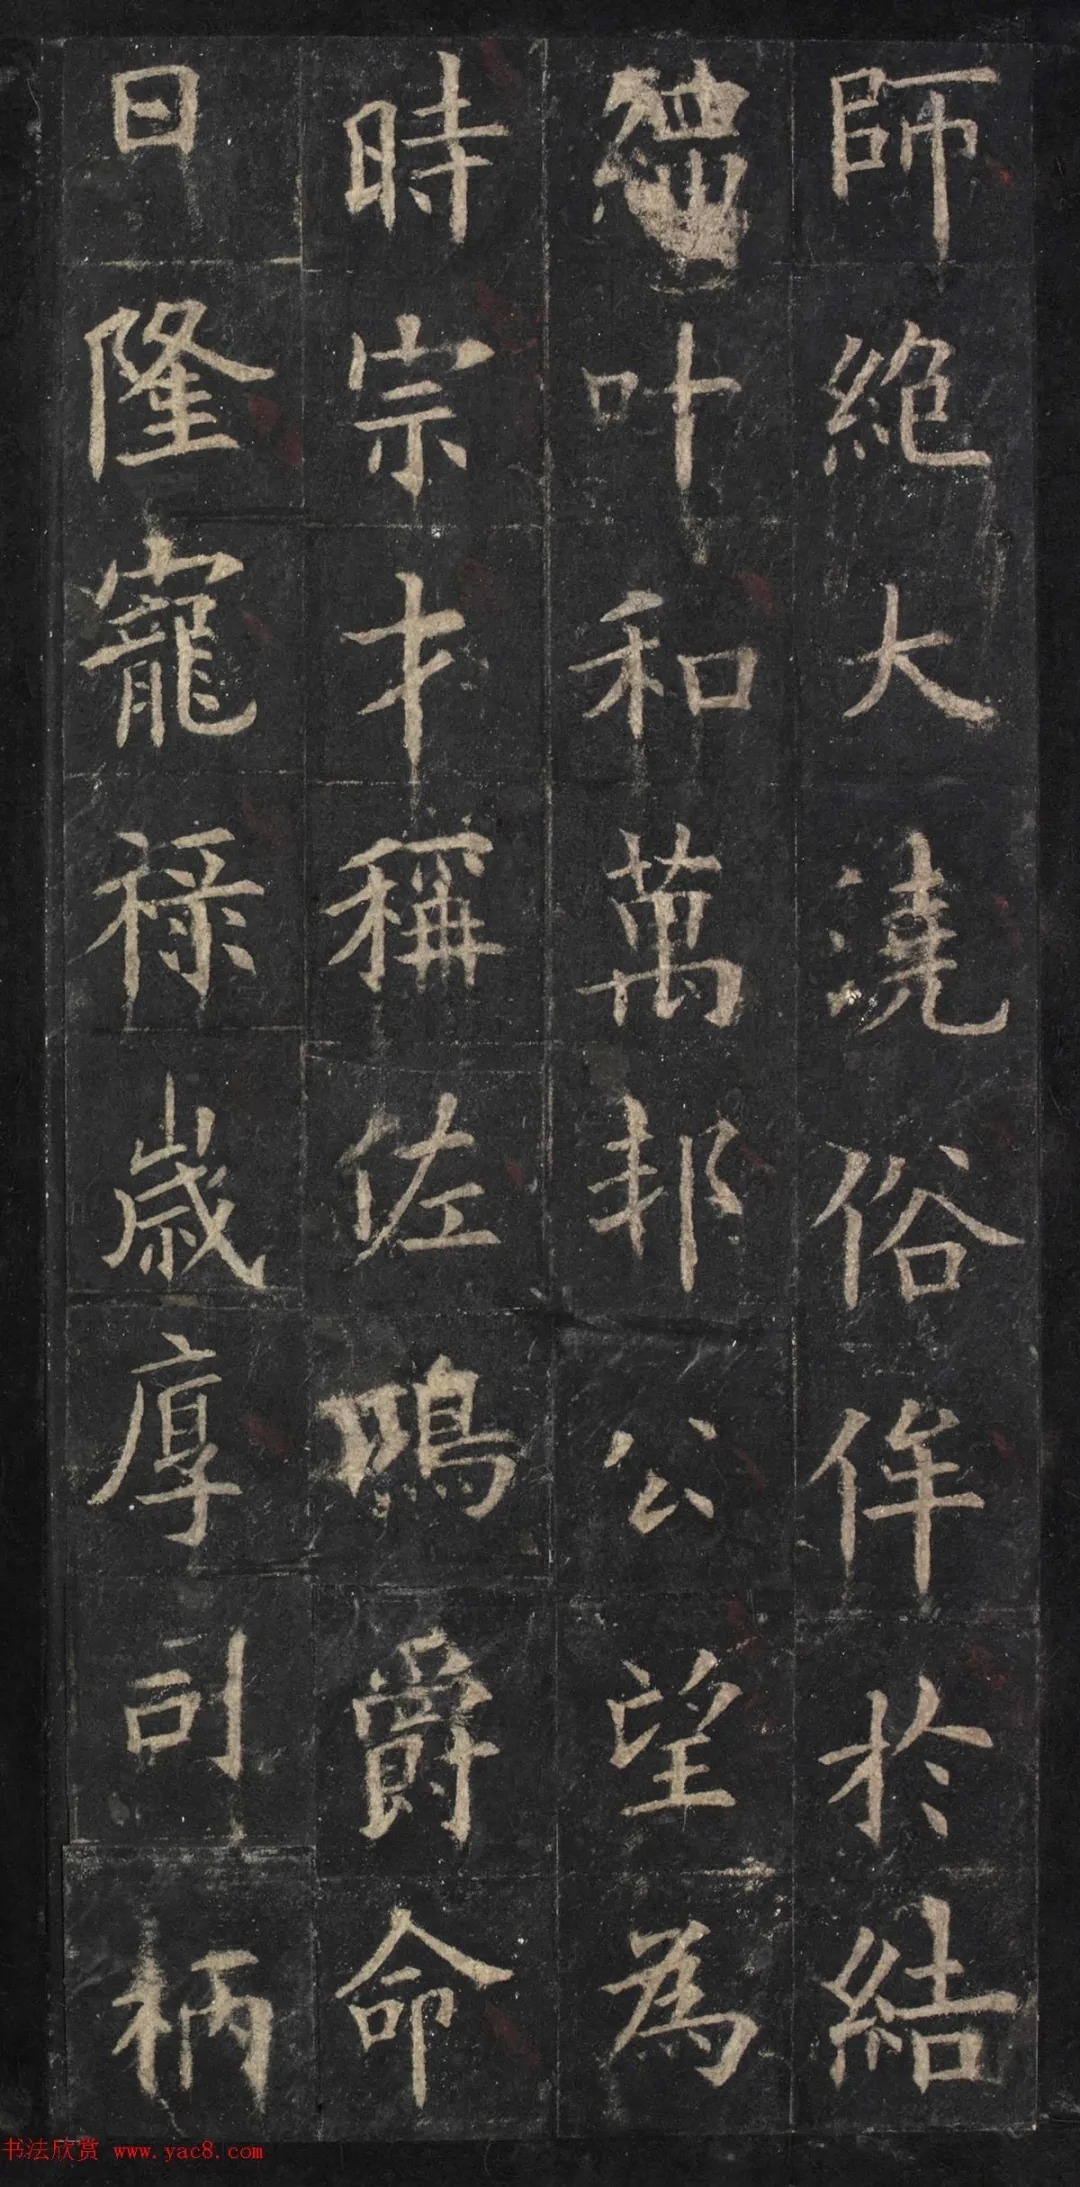 師絶大澆俗侔於結
繩叶和萬邦公望為
時宗才稱佐鳴爵命
日隆寵祿歳厚司柄
书法欣赏 www.yac8.com